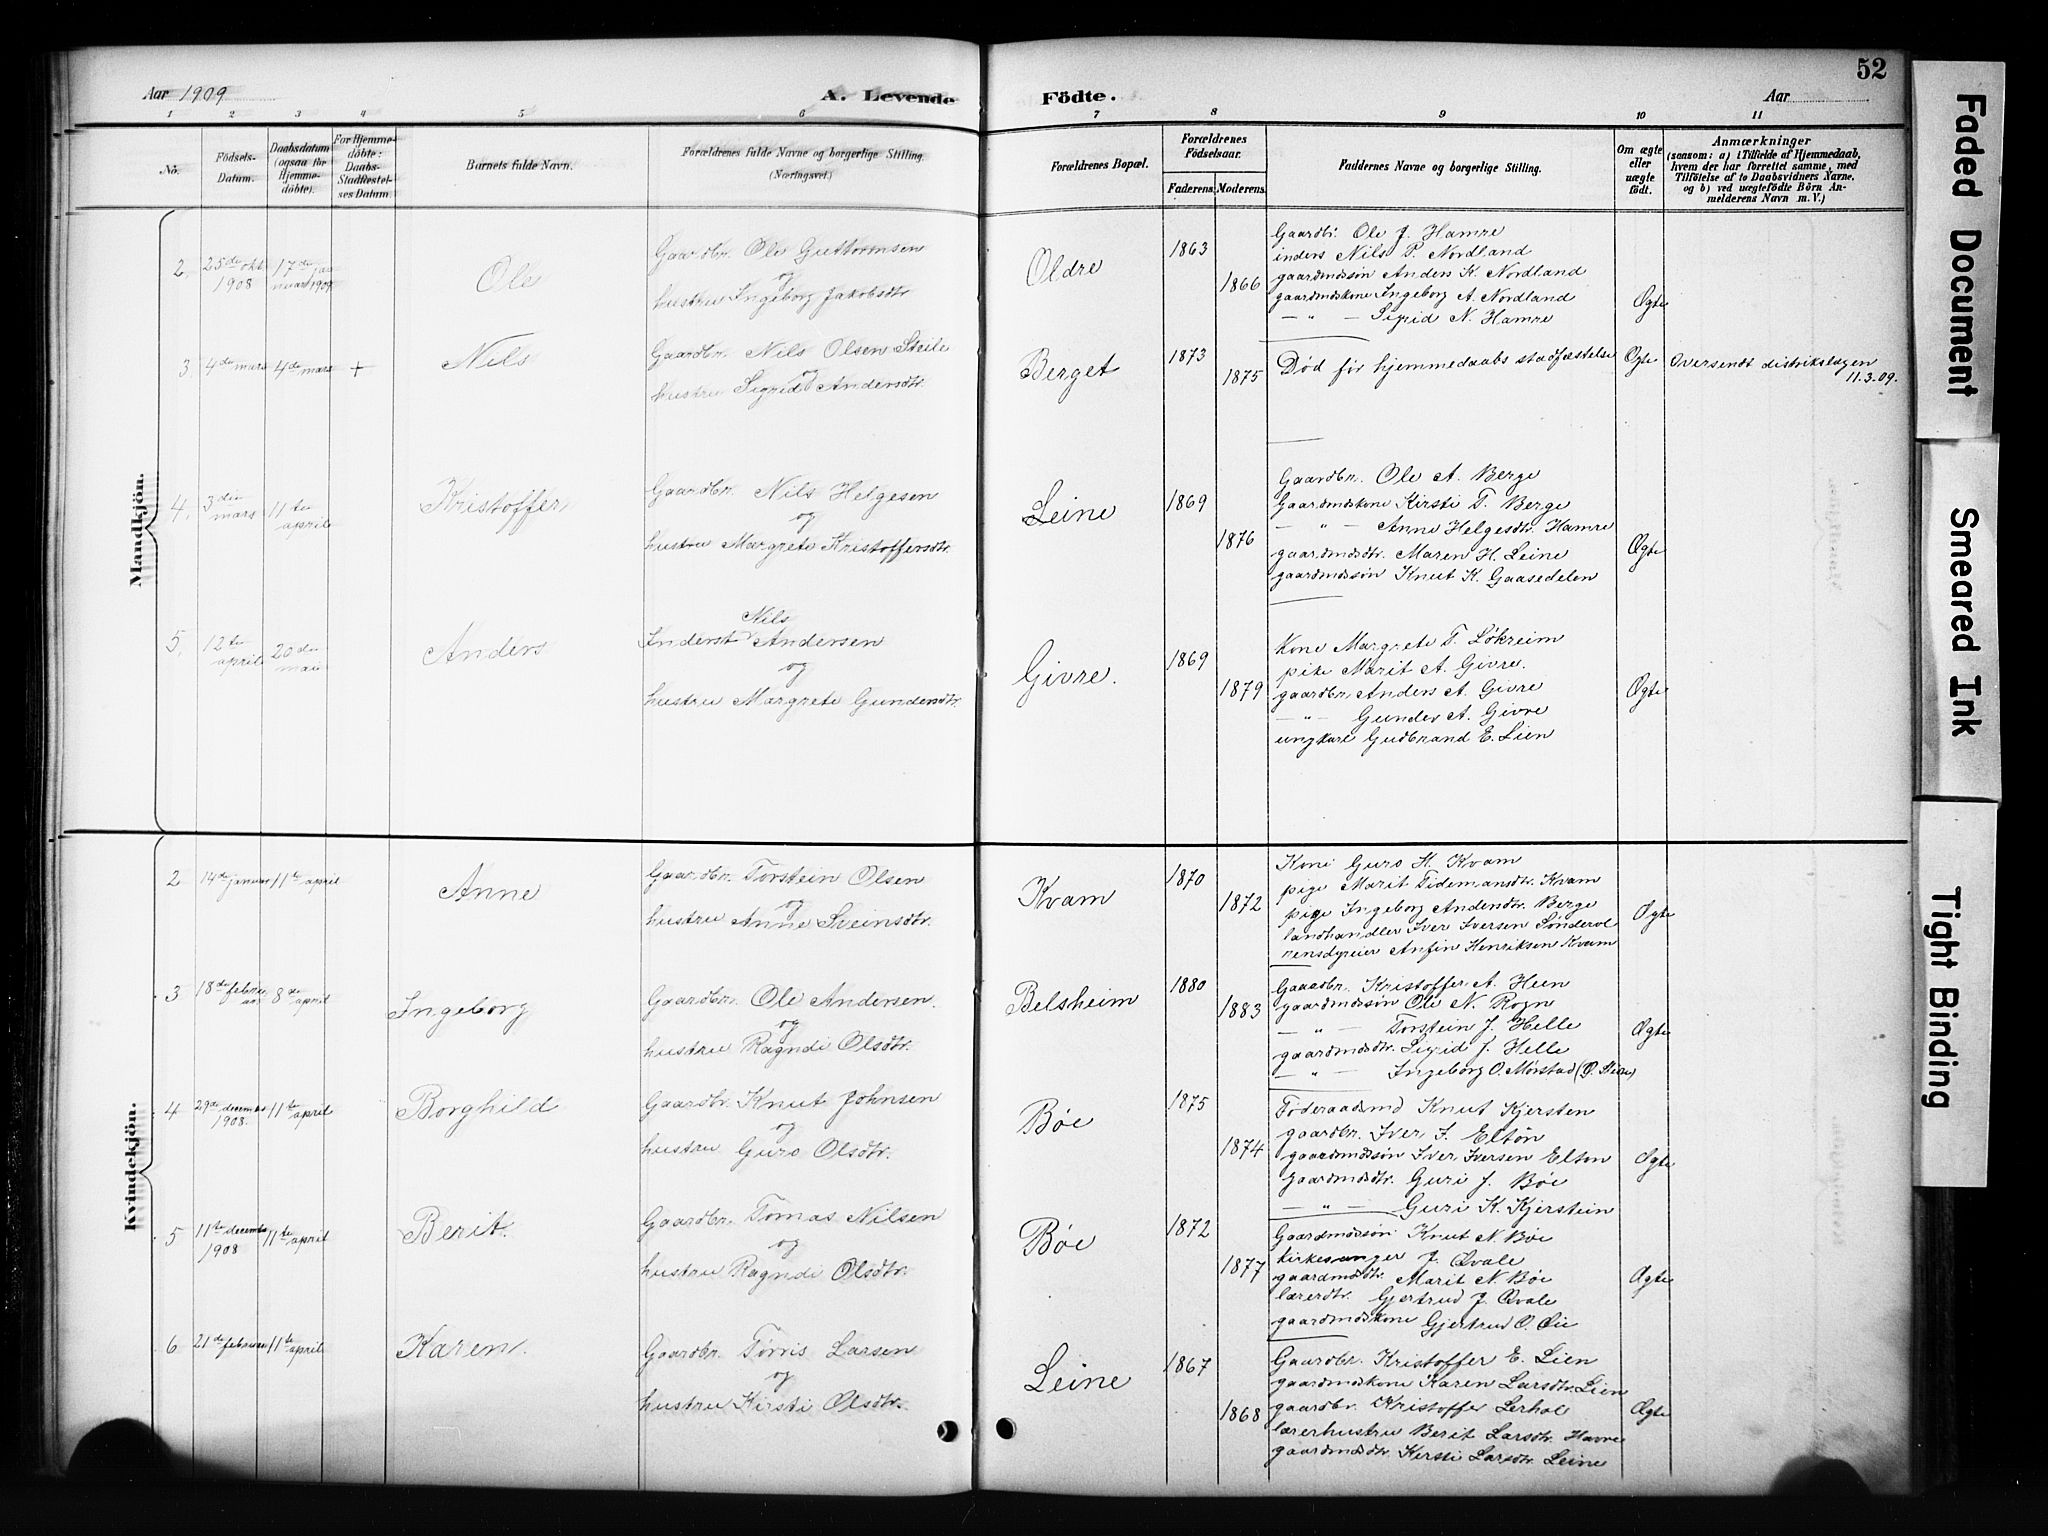 52
Aar 1909
A. Levende Födte.
Aar
1 2 3 4 5 6 7 8 9 10 11
No.
Födsels-Datum.
Daabsdatum (ogsaa for Hjemmedöbte).
For Hjemmedöbte: Daabs-Stadfæstelses Datum.
Barnets fulde Navn.
Forældrenes fulde Navne og borgerlige Stilling.
(Næringsvei.)
Forældrenes Bopæl.
Forældrenes Födselsaar.
Faderens. Moderens.
Faddernes Navne og borgerlige Stilling.
Om ægte eller uægte födt.
Anmærkninger
(saasom: a) i Tilfælde af Hjemmedaab, hvem der har forrettet samme, med Tilföielse af to Daabsvidners Navne, og b) ved uægtefödte Börn Anmelderens Navn m. V.)
Mandkjön.
2. 25de okt. 1908 17de januar 1909 Ole
Gaardbr. Ole Guttormsen
og
hustru Ingeborg Jakobsdtr.
Oldre 1863 1866
Gaardbr. Ole J. Hamre
inders Nils P. Nordland
gaardmdssøn Anders K. Nordland
gaardmdskone Ingeborg A. Nordland
— " — Sigrid N. Hamre
Ægte
3. 4de mars 4de mars + Nils
Gaardbr. Nils Olsen Steile
og
hustru Sigrid Andersdtr.
Berget 1873 1875
Død før hjemmedaabs stadfæstelse
Ægte
Oversendt distrikslægen
11.3.09.
4. 3die mars 11te april Kristoffer
Gaardbr. Nils Helgesen
og
hustru Margrete Kristoffersdtr.
Leine 1869 1876
Gaardbr. Ole A. Berge
Gaardmdskone Kirsti T. Berge
— " — Anne Helgesdtr. Hamre
gaardmdsdtr. Maren H. Leine
gaardmdssøn Knut K. Gaasedelen
Ægte
5. 12te april 20de mai Anders
Nils
Inderst Andersen
og
hustru Margrete Gundersdtr.
Givre. 1869 1879
Kone Margrete T. Løkreim
pike Marit A. Givre.
gaardbr. Anders A. Givre
— " — Gunder A. Givre
ungkarl Gudbrand E. Lien
Ægte
Kvindekjön.
2 14de januar 11te april Anne
Gaardbr. Torstein Olsen
og
hustru Anne Sveinsdtr.
Kvam 1870 1872
Kone Guro H. Kvam
pige Marit Tidemansdtr. Kvam
pige Ingeborg Andersdtr. Berge
landhandler Iver Iversen Sønderol
Anfin Henriksen Kvam
Ægte
3 18de februar 8de april Ingeborg
Gaardbr. Ole Andersen.
og
hustru Ragndi Olsdtr.
Belsheim 1880 1883
Gaardbr. Kristoffer A. Heen
gaardmdssøn Ole N. Rogn
— " — Torstein J. Helle
gaardmdsdtr. Sigrid J. Helle
— " — Ingeborg O. Mørstad
Ægte
4 29de december 1908. 11te april Borghild
Gaardbr. Knut Johnsen
og
hustru Guro Olsdtr.
Bøe 1875 1874
Føderaadsmd Knut Kjersten
gaardbr. Iver I. Elton
gaardmdssøn Iver Iversen Elton
gaardmdsdtr. Guri J. Bøe
— " — Guri K. Kjerstein
Ægte
5 11te december 1908 11te april Berit.
Gaardbr. Tomas Nilsen
og
hustru Ragndi Olsdtr.
Bøe 1872 1877
Gaardmdssøn Knut N. Bøe
kirkesanger J. Øvale
gaardmdsdtr. Marit N. Bøe
lærerdtr. Gjertrud J. Øvale
gaardmdskone Gjertrud O. Øie
Ægte
6 21de februar 11te april Karen.
Gaardbr. Tørris Larsen
og
hustru Kirsti Olsdtr.
Leine 1867 1868
Gaardbr. Kristoffer E. Lien
gaardmdskone Karen Larsdtr. Lien
gaardbr. Kristoffer Lerhol
lærerhustru Berit Larsdtr. Havre
gaardmdsdtr. Kirsti Larsdtr. Leine
Ægte
Faded Document
Smeared Ink
Tight Binding